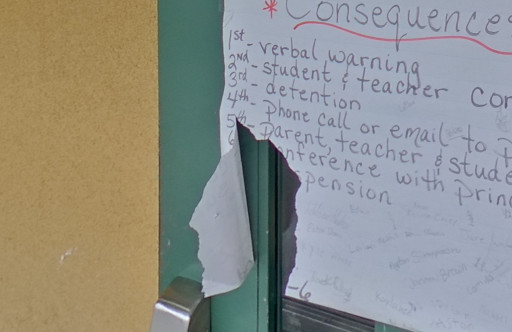 * Consequence
1st - verbal warning
2nd - student & teacher con
3rd - detention
4th - Phone call or email to p
5th - Parent, teacher & stude
6 onference with prin
spension
-6